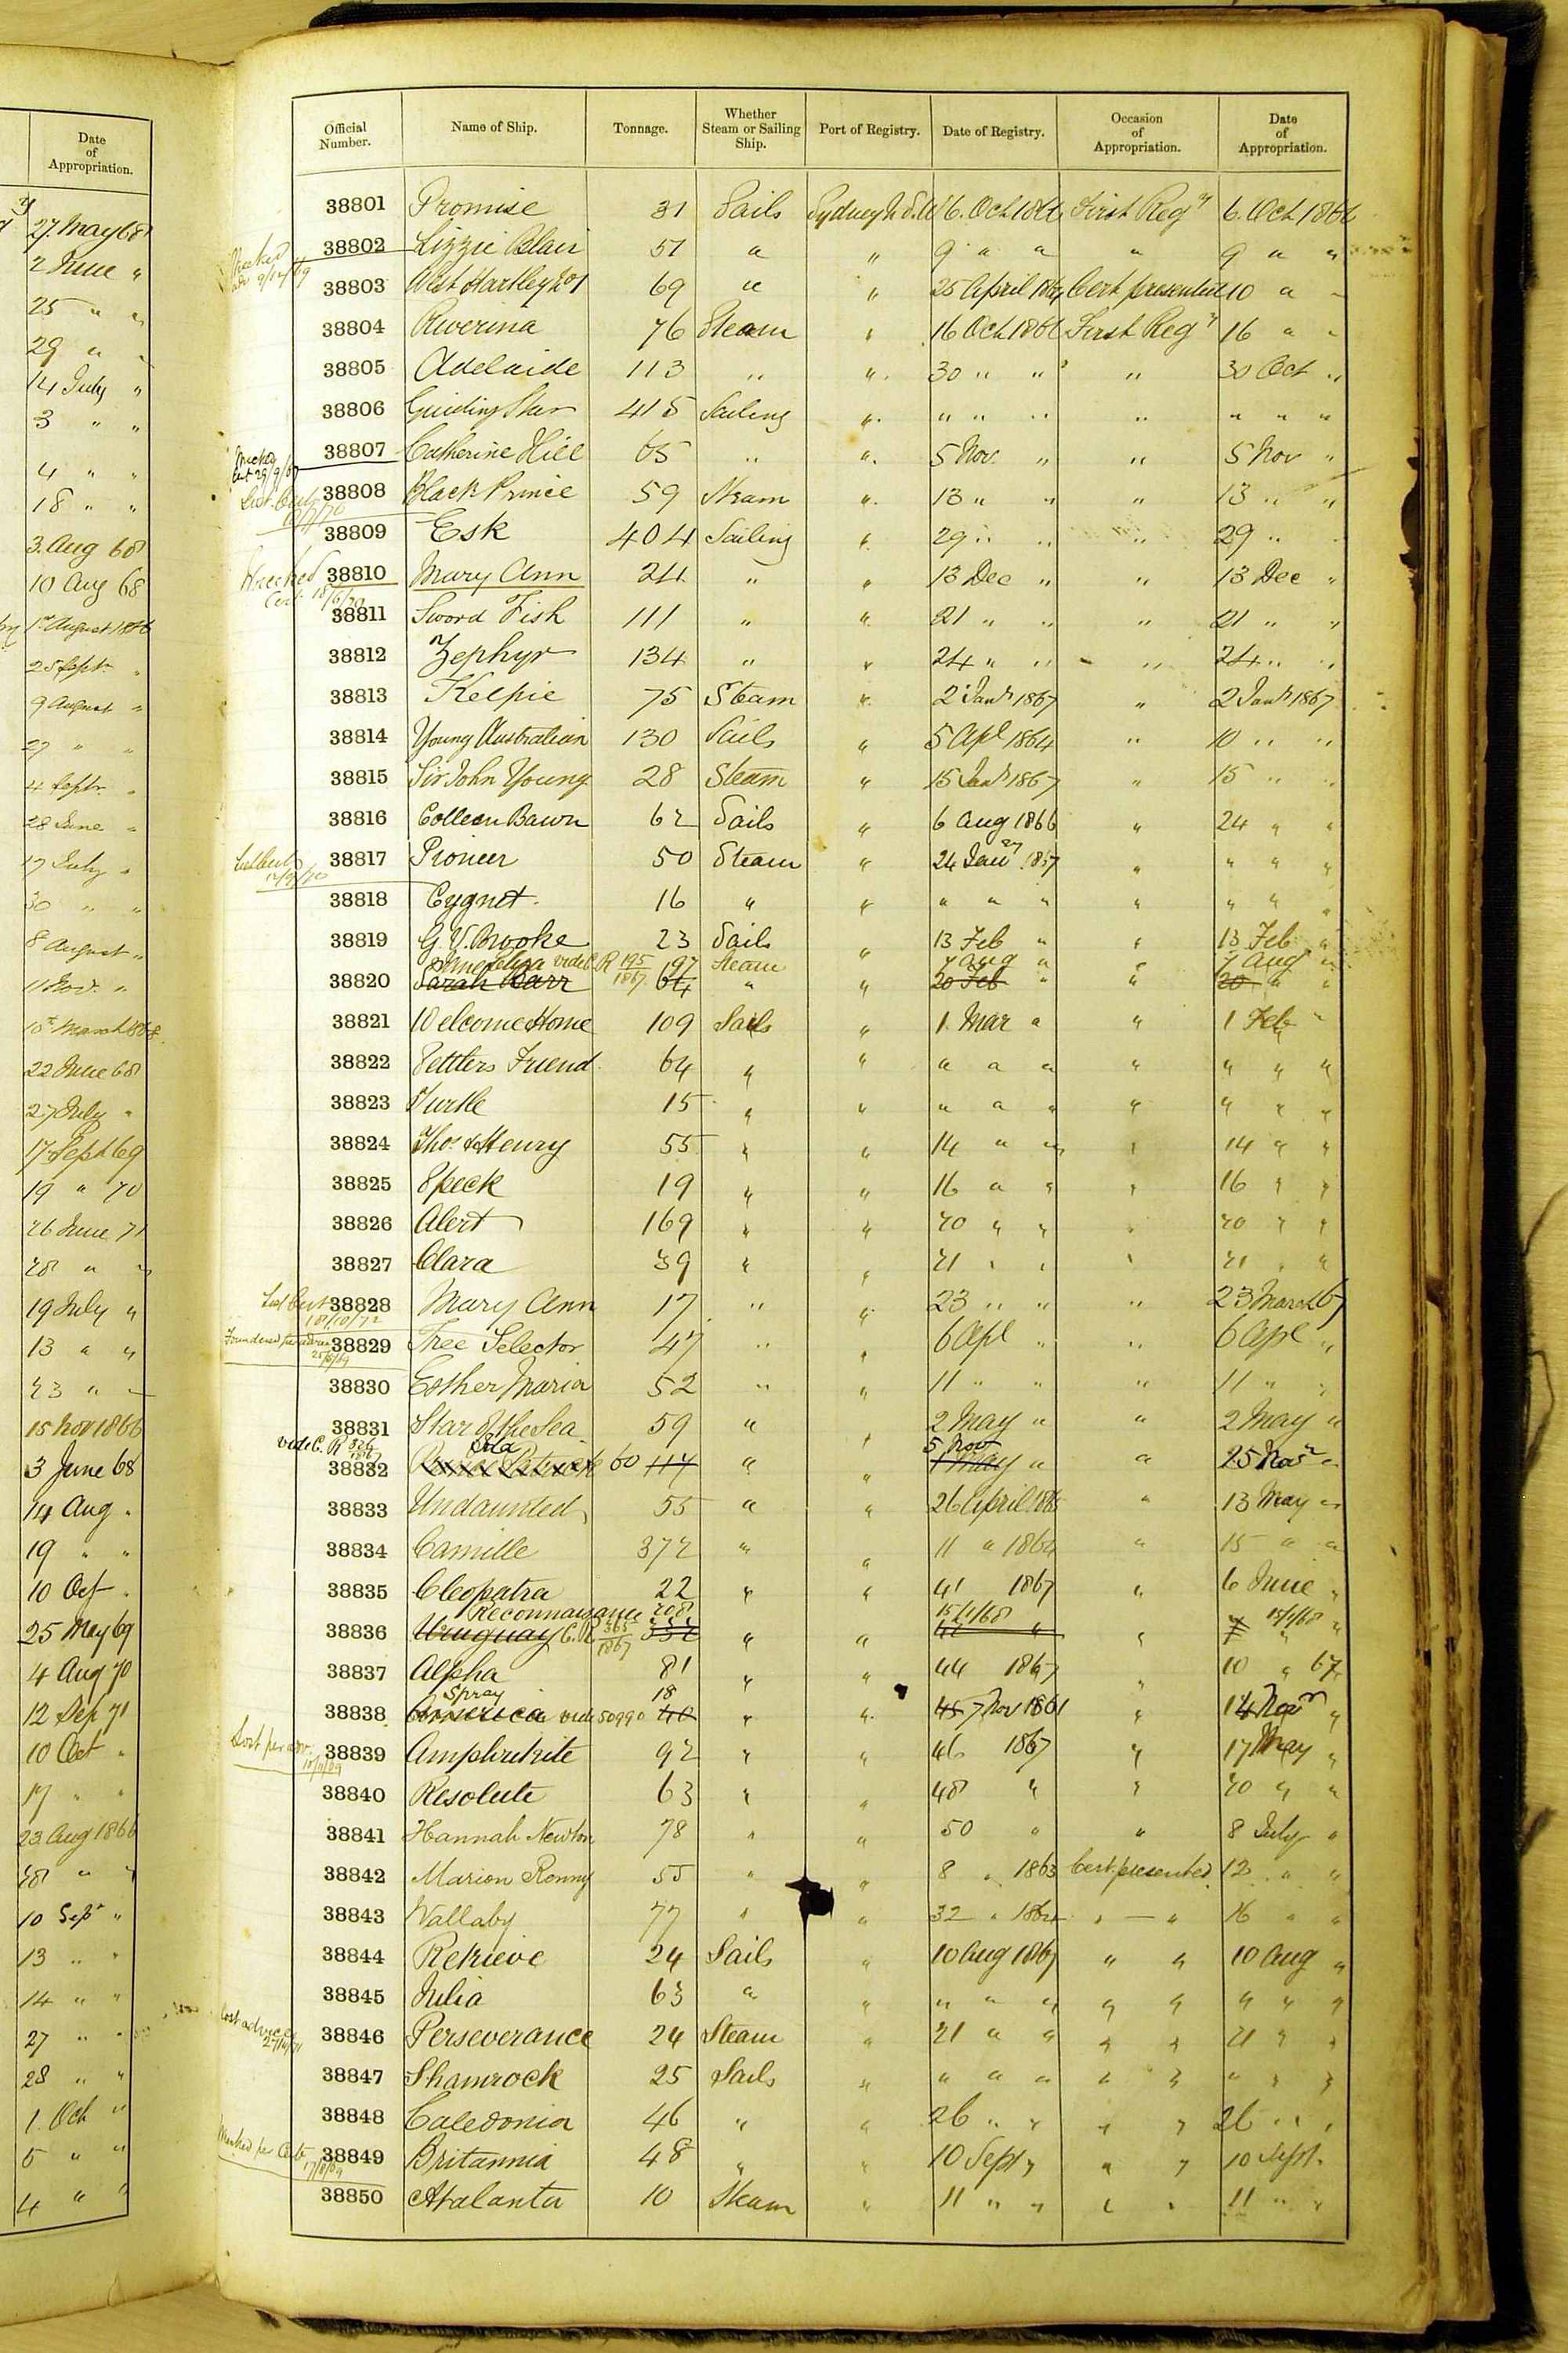 Date of Appropriation.
27. May 68
2 June "
25 " "
29 " "
14 July "
3 " "
4 " "
18 " "
3. Aug 68
10 Aug 68
1st August 1866
25 Sept. "
9 August "
27 " "
4 Septr. "
28 June "
17 July "
30 " "
8 August "
11 Nov. "
10th March 1868
22 June 68
27 July "
17 Sept 69
19 " 70
26 June 71
28 " "
19 July "
13 " "
23 " "
15 Nov 1866
3 June 68
14 Aug "
19 " "
10 Oct "
25 May 69
4 Aug 70
12 Sep 71
10 Oct "
17 " "
23 Aug 1866
28 " "
10 Sepr "
13 " "
14 " "
27 " "
28 " "
1. Oct "
5 " "
4 " "
Official Number. Name of Ship. Tonnage. Whether Steam or Sailing Ship. Port of Registry. Date of Registry. Occasion of Appropriation. Date of Appropriation.
38801 Promise 31 Sails Sydney N.S.W 6. Oct 1866 First Regy 6. Oct 1866
38802 Lizzie Blair 51 " " 9 " " " 9 " "
38803 West Hartley No 1 69 " " 25 April 1864 Cert presented 10 " "
38804 Riverina 76 Steam " 16 Oct 1866 First Regy 16 " "
38805 Adelaide 113 " " 30 " " " 30 Oct "
38806 Guiding Star 415 Sailing " " " " " " " "
38807 Catherine Hill 65 " " 5 Nov. " " 5 Nov "
38808 Black Prince 59 Steam " 13 " " 13 " "
38809 Esk 404 Sailing " 29 " " " 29 " "
Wrecked Cert 18/6/70
38810 Mary Ann 24 " " 13 Dec " " 13 Dec "
38811 Sword Fish 111 " " 21 " " " 21 " "
38812 Zephyr 134 " " 24 " " " 24 " "
38813 Kelpie 75 Steam " 2 Jany 1867 " 2 Jany 1867
38814 Young Australian 130 Sails " 5 Apl 1864 " 10 " "
38815 Sir John Young 28 Steam " 15 Jany 1867 " 15 " "
38816 Colleen Bawn 62 Sails " 6 Aug 1866 " 24 " "
38817 Pioneer 50 Steam " 24 Jany 1867 " " " "
38818 Cygnet 16 " " " " " " " " "
38819 G. V. Brooke 23 Sails " 13 Feb " " 13 Feb "
vide C. R 195/1867 197 Steam 7 Aug " 7 Aug "
38820 Sarah Barr 64 " " 20 Feb " " 20 " "
38821 Welcome Home 109 Sails " 1. Mar " " 1 Feb "
38822 Settlers Friend 64 " " " " " " " " "
38823 Turtle 15 " " " " " " " " "
38824 Thos. & Henry 55 " " 14 " " " 14 " "
38825 Speck 19 " " 16 " " " 16 " "
38826 Alert 169 " " 20 " " " 20 " "
38827 Clara 39 " " 21 " " " 21 " "
38828 Mary Ann 17 " " 23 " " " 23 March 67
38829 Free Selector 47 " " 6 Apl " " 6 Apl "
38830 Esther Maria 52 " " 11 " " " 11 " "
38831 Star of the Sea 59 " " 2 May " " 2 May "
vide C. R 326/1867 5 Nov
38832 60 117 " " 1 May " " 25 Novr "
38833 Undaunted 55 " " 26 April 1865 " 13 May "
38834 Camille 372 " " 11 " 1864 " 15 " "
38835 Cleopatra 22 " " 41 1867 " 6 June "
Reconnaisance 208 15/1/68 15/1/68
38836 Uruguay C. R. 365/1867 " " " 7 " "
38837 Alpha 81 " " 44 1867 " 10 " 67
Spray 18
38838 America vide 50990 40 " " 45 7 Nov 1861 " 14 Novr "
38839 Amphitrite 92 " " 46 1867 " 17 May "
38840 Resolute 63 " " 48 " " 20 " "
38841 Hannah Newton 78 " " 50 " " 8 July "
38842 Marion Renny 55 " " 8 " 1863 Cert presented 12 " "
38843 Wallaby 77 " " 32 " 1864 " " 16 " "
38844 Retrieve 24 Sails " 10 Aug 1867 " " 10 Aug "
38845 Julia 63 " " " " " " " " " "
38846 Perseverance 24 Steam " 21 " " " " 21 " "
38847 Shamrock 25 Sails " " " " " " " " "
38848 Caledonia 46 " " 26 " " " " 26 " "
38849 Britannia 48 " " 10 Sept " " " 10 Sept.
38850 Atalanta 10 Steam " 11 " " " " 11 " "